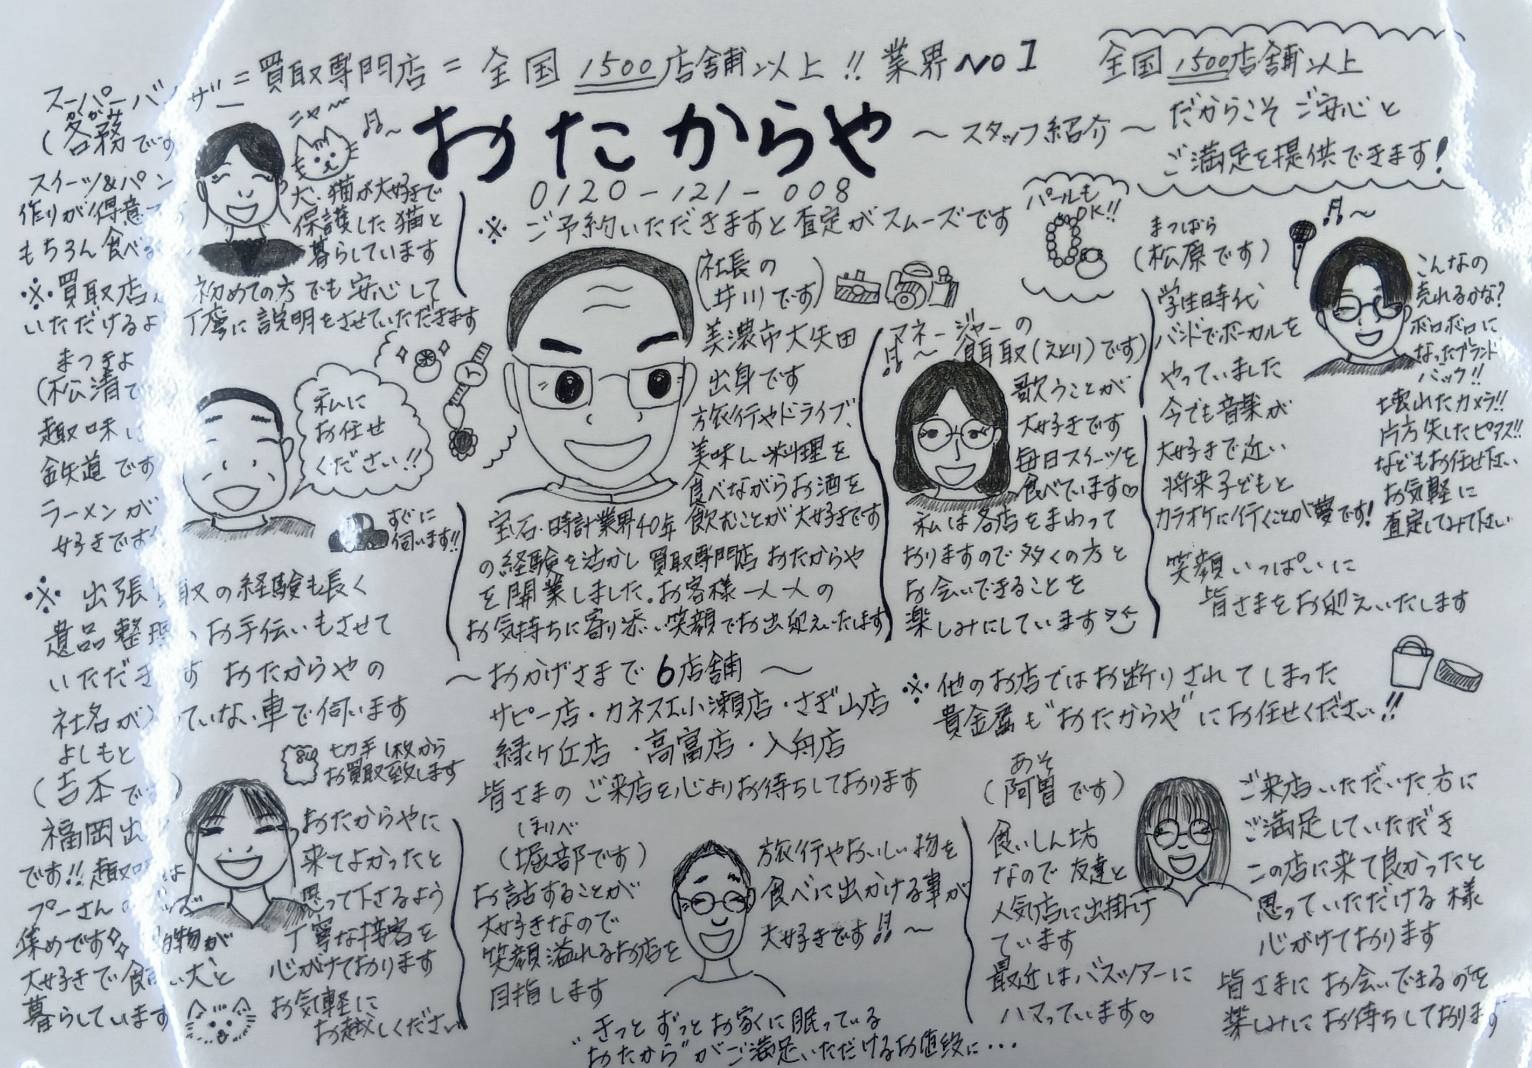 =買取専門店= 全国1500店舗以上!! 業界No1
全国1500店舗以上
だからこそ ご安心と
ご満足を提供できます!
おたからや 〜スタッフ紹介〜
0120-121-008
※ ご予約いただきますと査定がスムーズです
スーパーバイザー
かがみ
(各務です
ニャ〜
犬・猫が大好きで
保護した猫と
暮らしています
スイーツ&パン
作りが得意
もちろん食べる
※買取店 初めての方でも安心して
いただけるよう丁寧に説明をさせていただきます
まつきよ
(松清で
趣味は
鉄道です
ラーメンが
好きです
私に
お任せ
ください!!
すぐに
伺います!!
※ 出張買取の経験も長く
遺品整理のお手伝いもさせて
いただきます おたからやの
社名が入っていない車で伺います
よしもと
(吉本です)
切手1枚から
お買取致します
福岡出
です!!趣味は
プーさんのグッズ
集めです 動物が
大好きで 犬と
暮らしています
おたからやに
来てよかったと
思って下さるよう
丁寧な接客を
心がけております
お気軽に
お越しください
(社長の
井川です)
美濃市大矢田
出身です
旅行やドライブ、
美味しい料理を
食べながらお酒を
飲むことが大好きです
宝石・時計業界40年
の経験を活かし買取専門店おたからや
を開業しました。お客様一人一人の
お気持ちに寄り添い笑顔でお出迎えいたします
〜おかげさまで6店舗〜
サピー店・カネスエ小瀬店・さぎ山店
緑ヶ丘店・高富店・入舟店
皆さまのご来店を心よりお待ちしております
ほりべ
(堀部です)
お話することが
大好きなので
笑顔溢れるお店を
目指します
旅行やおいしい物を
食べに出かける事が
大好きです
マネージャーの
(えとり)です)
歌うことが
大好きです
毎日スイーツを
食べています♡
私は各店をまわって
おりますので多くの方と
お会いできることを
楽しみにしています
パールも
OK!!
まつばら
(松原です)
学生時代
バンドでボーカルを
やっていました
今でも音楽が
大好きで近い
将来子どもと
カラオケに行くことが夢です!
こんなの
売れるかな?
ボロボロに
なったブランド
バック!!
壊れたカメラ!!
片方失したピアス!!
などもお任せ下さい
お気軽に
査定してみて下さい
笑顔いっぱいに
皆さまをお迎えいたします
※ 他のお店ではお断りされてしまった
貴金属も"おたからや"にお任せください!!
あそ
(阿曽です)
食いしん坊
なので友達と
人気店に出掛け
ています
最近はバスツアーに
ハマっています♡
ご来店いただいた方に
ご満足していただき
この店に来て良かったと
思っていただける様
心がけております
皆さまにお会いできるのを
楽しみにお待ちしております
きっとずっとお家に眠っている
"おたから"がご満足いただけるお値段に・・・